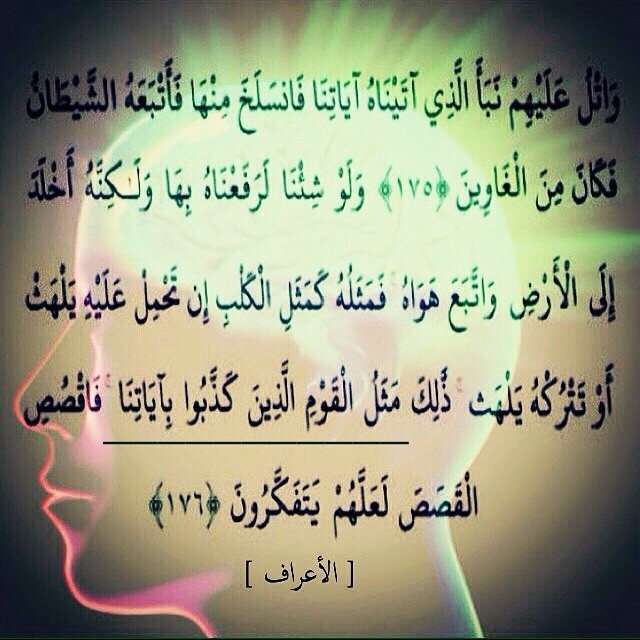 وَاتْلُ عَلَيْهِمْ نَبَأَ الَّذِي آتَيْنَاهُ آيَاتِنَا فَانسَلَخَ مِنْهَا فَأَتْبَعَهُ الشَّيْطَانُ
فَكَانَ مِنَ الْغَاوِينَ ﴿١٧٥﴾ وَلَوْ شِئْنَا لَرَفَعْنَاهُ بِهَا وَلَـٰكِنَّهُ أَخْلَدَ
إِلَى الْأَرْضِ وَاتَّبَعَ هَوَاهُ ۚ فَمَثَلُهُ كَمَثَلِ الْكَلْبِ إِن تَحْمِلْ عَلَيْهِ يَلْهَثْ
أَوْ تَتْرُكْهُ يَلْهَث ۚ ذَٰلِكَ مَثَلُ الْقَوْمِ الَّذِينَ كَذَّبُوا بِآيَاتِنَا ۚ فَاقْصُصِ
الْقَصَصَ لَعَلَّهُمْ يَتَفَكَّرُونَ ﴿١٧٦﴾
[ الأعراف ]